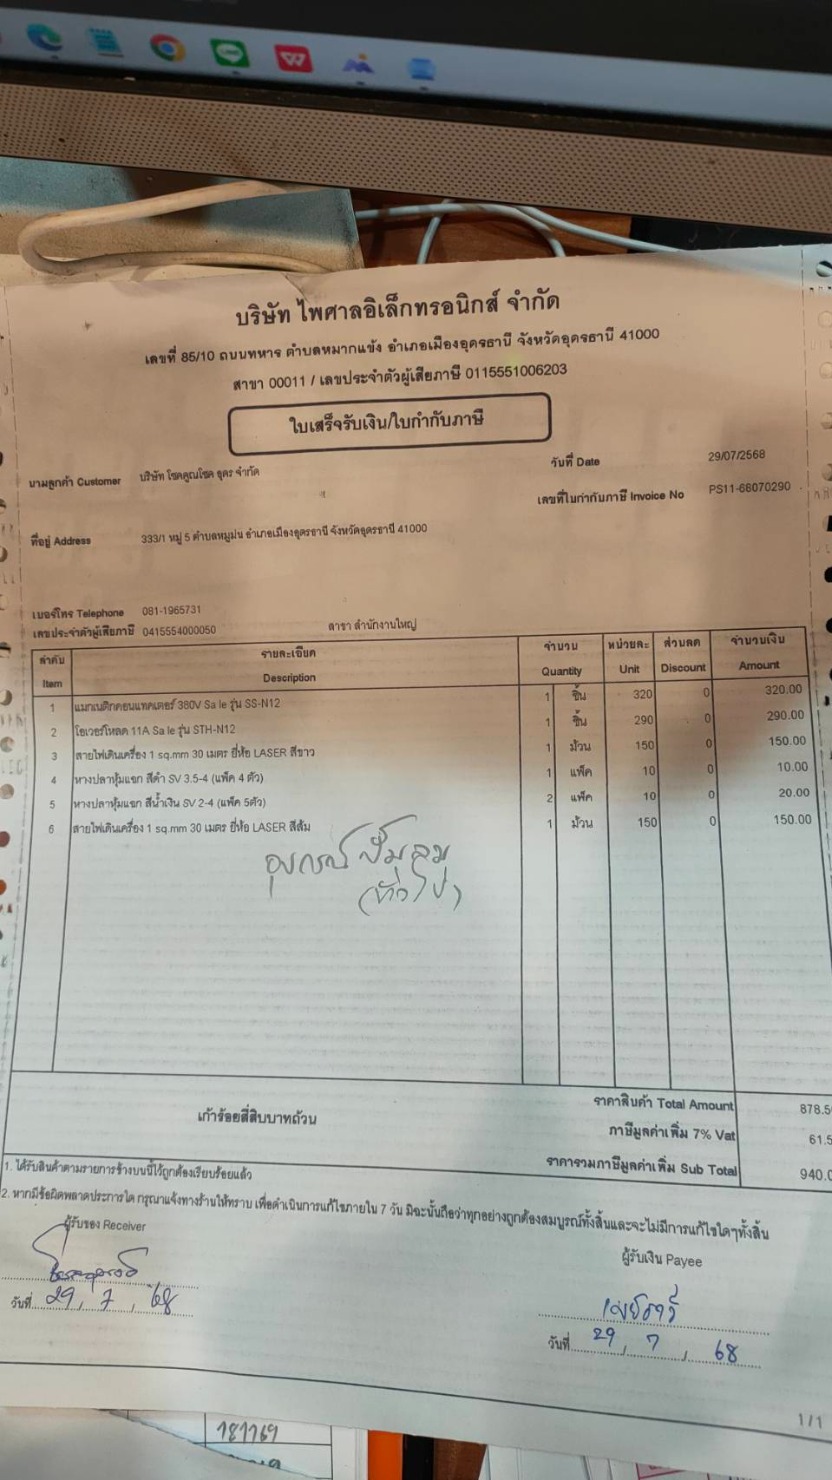 บริษัท ไพศาลอิเล็กทรอนิกส์ จำกัด
เลขที่ 85/10 ถนนทหาร ตำบลหมากแข้ง อำเภอเมืองอุดรธานี จังหวัดอุดรธานี 41000
สาขา 00011 / เลขประจำตัวผู้เสียภาษี 0115551006203
ใบเสร็จรับเงิน/ใบกำกับภาษี
นามลูกค้า Customer บริษัท โชคคูณโชค อุดร จำกัด วันที่ Date 29/07/2568
เลขที่ใบกำกับภาษี Invoice No PS11-68070290
ที่อยู่ Address 333/1 หมู่ 5 ตำบลหมูม่น อำเภอเมืองอุดรธานี จังหวัดอุดรธานี 41000
เบอร์โทร Telephone 081-1965731
เลขประจำตัวผู้เสียภาษี 0415554000050 สาขา สำนักงานใหญ่
ลำดับ รายละเอียด จำนวน หน่วยละ ส่วนลด จำนวนเงิน
Item Description Quantity Unit Discount Amount
1 แมกเนติกคอนแทคเตอร์ 380V Sa le รุ่น SS-N12 1 ชิ้น 320 0 320.00
2 โอเวอร์โหลด 11A Sa le รุ่น STH-N12 1 ชิ้น 290 0 290.00
3 สายไฟเดินเครื่อง 1 sq.mm 30 เมตร ยี่ห้อ LASER สีขาว 1 ม้วน 150 0 150.00
4 หางปลาหุ้มแฉก สีดำ SV 3.5-4 (แพ็ค 4 ตัว) 1 แพ็ค 10 0 10.00
5 หางปลาหุ้มแฉก สีน้ำเงิน SV 2-4 (แพ็ค 5ตัว) 2 แพ็ค 10 0 20.00
6 สายไฟเดินเครื่อง 1 sq.mm 30 เมตร ยี่ห้อ LASER สีส้ม 1 ม้วน 150 0 150.00
อุปกรณ์ ปั๊มลม
ราคาสินค้า Total Amount 878.5
เก้าร้อยสี่สิบบาทถ้วน
ภาษีมูลค่าเพิ่ม 7% Vat 61.5
ราคารวมภาษีมูลค่าเพิ่ม Sub Total 940.0
1. ได้รับสินค้าตามรายการข้างบนนี้ไว้ถูกต้องเรียบร้อยแล้ว
2. หากมีข้อผิดพลาดประการใด กรุณาแจ้งทางร้านให้ทราบ เพื่อดำเนินการแก้ไขภายใน 7 วัน มิฉะนั้นถือว่าทุกอย่างถูกต้องสมบูรณ์ทั้งสิ้นและจะไม่มีการแก้ไขใดๆทั้งสิ้น
ผู้รับของ Receiver
ผู้รับเงิน Payee
วันที่ 29, 7, 68
วันที่ 29, 7, 68
1/1
181769